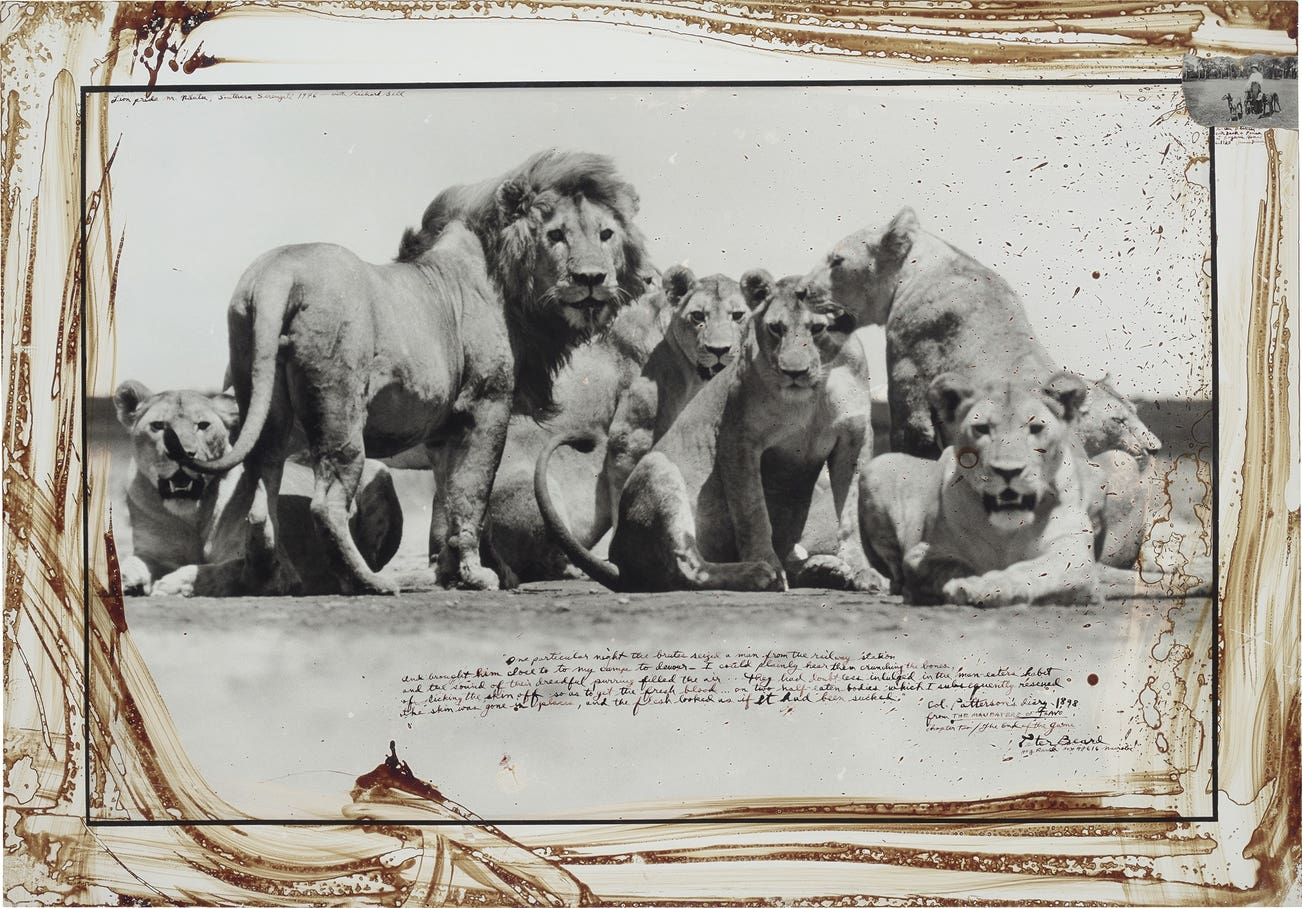 Lion pride nr. Ndutu, Southern Serengeti 1976 with Richard Bell
"One particular night the brutes seized a man from the railway station
and brought him close to my camp to devour - I could plainly hear them crunching the bones,
and the sound of their dreadful purring filled the air ... they had doubtless indulged in the man eaters habit
of licking the skin off so as to get the fresh blood ... on two half eaten bodies which I subsequently rescued
the skin was gone in places, and the flesh looked as if it had been sucked."
Col. Patterson's diary 1898
from THE MAN EATERS OF TSAVO
chapter two / The End of the Game
Peter Beard
Nairobi